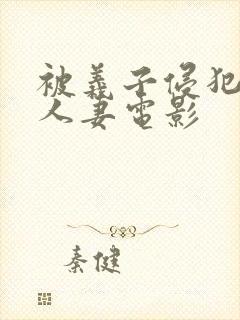 被義子侵犯
人妻電影
秦健